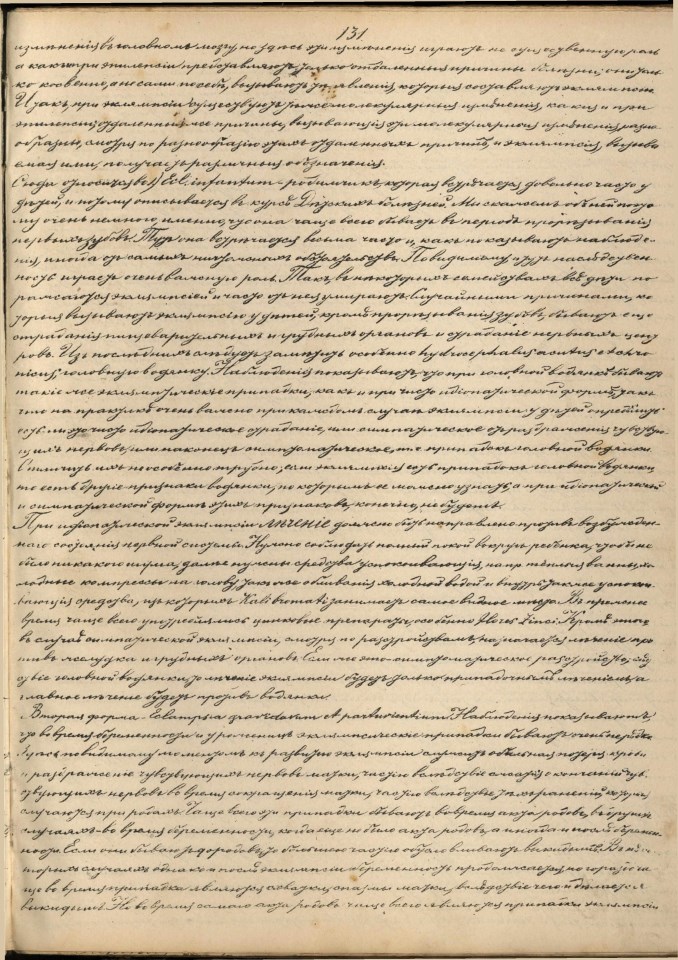 131
измѣненія въ головномъ мозгу, но здѣсь эти измѣненія играютъ не существенную роль
а какъ при эпилепсіи представляютъ только отдаленныя причины болѣзни; они толь-
ко косвенно, а не сами по себѣ, вызываютъ явленія, которыя составляютъ эклямпсію
Итакъ, при эклямпсіи существуютъ тѣ же молекулярныя измѣненія, какія и при
эпилепсіи; отдаленныя же причины, вызывающія эти молекулярныя измѣненія разно-
образны, смотря по разнообразію этихъ отдаленныхъ причинъ, и эклямпсія, вызывае-
мая ими, получаетъ различныя обозначенія.
Сюда относится во 1) Ecl. infantum - родимчикъ, которая встрѣчается довольно часто у
дѣтей, и потому описывается въ курсѣ Дѣтскихъ болѣзней. Мы скажемъ объ ней пото-
му очень немного, именно, что она чаще всего бываетъ въ періодъ прорѣзыванія
первыхъ зубовъ. Тутъ она встрѣчается весьма часто и, какъ показываютъ наблюде-
нія, иногда отъ самыхъ ничтожныхъ обстоятельствъ. Повидимому и тутъ наслѣдствен-
ность играетъ очень важную роль. Такъ, въ некоторыхъ семействахъ всѣ дѣти по-
ражаются эклямпсіей и часто отъ нея умираютъ. Случайными причинами, ко-
торыя вызываютъ эклямпсію у дѣтей, кромѣ прорѣзыванія зубовъ, бываютъ еще
страданія пищеварительныхъ и грудныхъ органовъ и страданіе нервныхъ цент-
ровъ. Изъ послѣднихъ слѣдуетъ замѣтить особенно hydrocephalus acutus et chro-
nicus, головную водянку. Наблюденія показываютъ, что при головной водянкѣ бываютъ
такіе же эклямпсическіе припадки, какъ и при чисто идіопатической формѣ, такъ
что на практикѣ очень важно при каждомъ случаѣ эклямпсіи у дѣтей опредѣлить
есть ли это чисто идіопатическое страданіе, или симпатическое отъ раздраженія чувствую-
щихъ нервовъ, или наконецъ симптоматическое, т.е. припадокъ головной водянки.
Отличить ихъ не особенно трудно, если эклямпсія есть припадокъ головной водянки,
то есть другіе признаки водянки, по которымъ ее можно узнать, а при идіопатической
и симпатической формѣ этихъ признаковъ, конечно, не будетъ.
При идіопатической эклямпсіи лѣченіе должно быть направлено противъ возбужден-
наго состоянія нервной системы. Нужно соблюдать полный покой вокругъ ребенка, чтобы не
было никакого шума; далѣе нужны средства успокоивающія, напр. теплыя ванны, хо-
лодные компрессы на голову, также обливанія холодной водой и внутрь также успокаи-
вающія средства, изъ которыхъ Kali bromati занимаетъ самое видное мѣсто. Въ прежнее
время чаще всего употреблялись цинковые препараты, особенно flores Zinci. Кромѣ того
въ случаѣ симпатической эклямпсіи, смотря по разстройствамъ, назначается лѣченіе про-
тивъ желудка и грудныхъ органовъ. Если же это симптоматическое разстройство, слѣд-
ствіе головной водянки, то лѣченіе эклямпсіи будетъ только припадочнымъ лѣченіемъ, а
главное лѣченіе будетъ противъ водянки.
Вторая форма - Eclampsia gravidarum et parturientium. Наблюденія показываютъ,
что во время беременности и у роженицъ эклямпсическіе припадки бываютъ очень нерѣдко.
Тутъ повидимому моментомъ къ развитію эклямпсіи служитъ обильная потеря крови
и раздраженіе чувствующихъ нервовъ матки, частію вслѣдствіе сжатія окончаній чув-
ствующихъ нервовъ во время сокращенія матки, частію вслѣдствіе тѣхъ раненій, которыя
случаются при родахъ. Чаще всего эти припадки бываютъ во время акта родовъ, въ другихъ
случаяхъ во время беременности, когда еще не было акта родовъ, а иногда и послѣ беремен-
ности. Если они бываютъ до родовъ, то большею частію обусловливаютъ выкидышъ. Въ нѣко-
торыхъ случаяхъ однако и послѣ эклямпсіи беременность продолжается, но гораздо ча-
ще во время припадка являются спазмы матки, вслѣдствіе чего и дѣлается
выкидышъ. Но во время самаго акта родовъ чаще всего являются припадки эклямпсіи